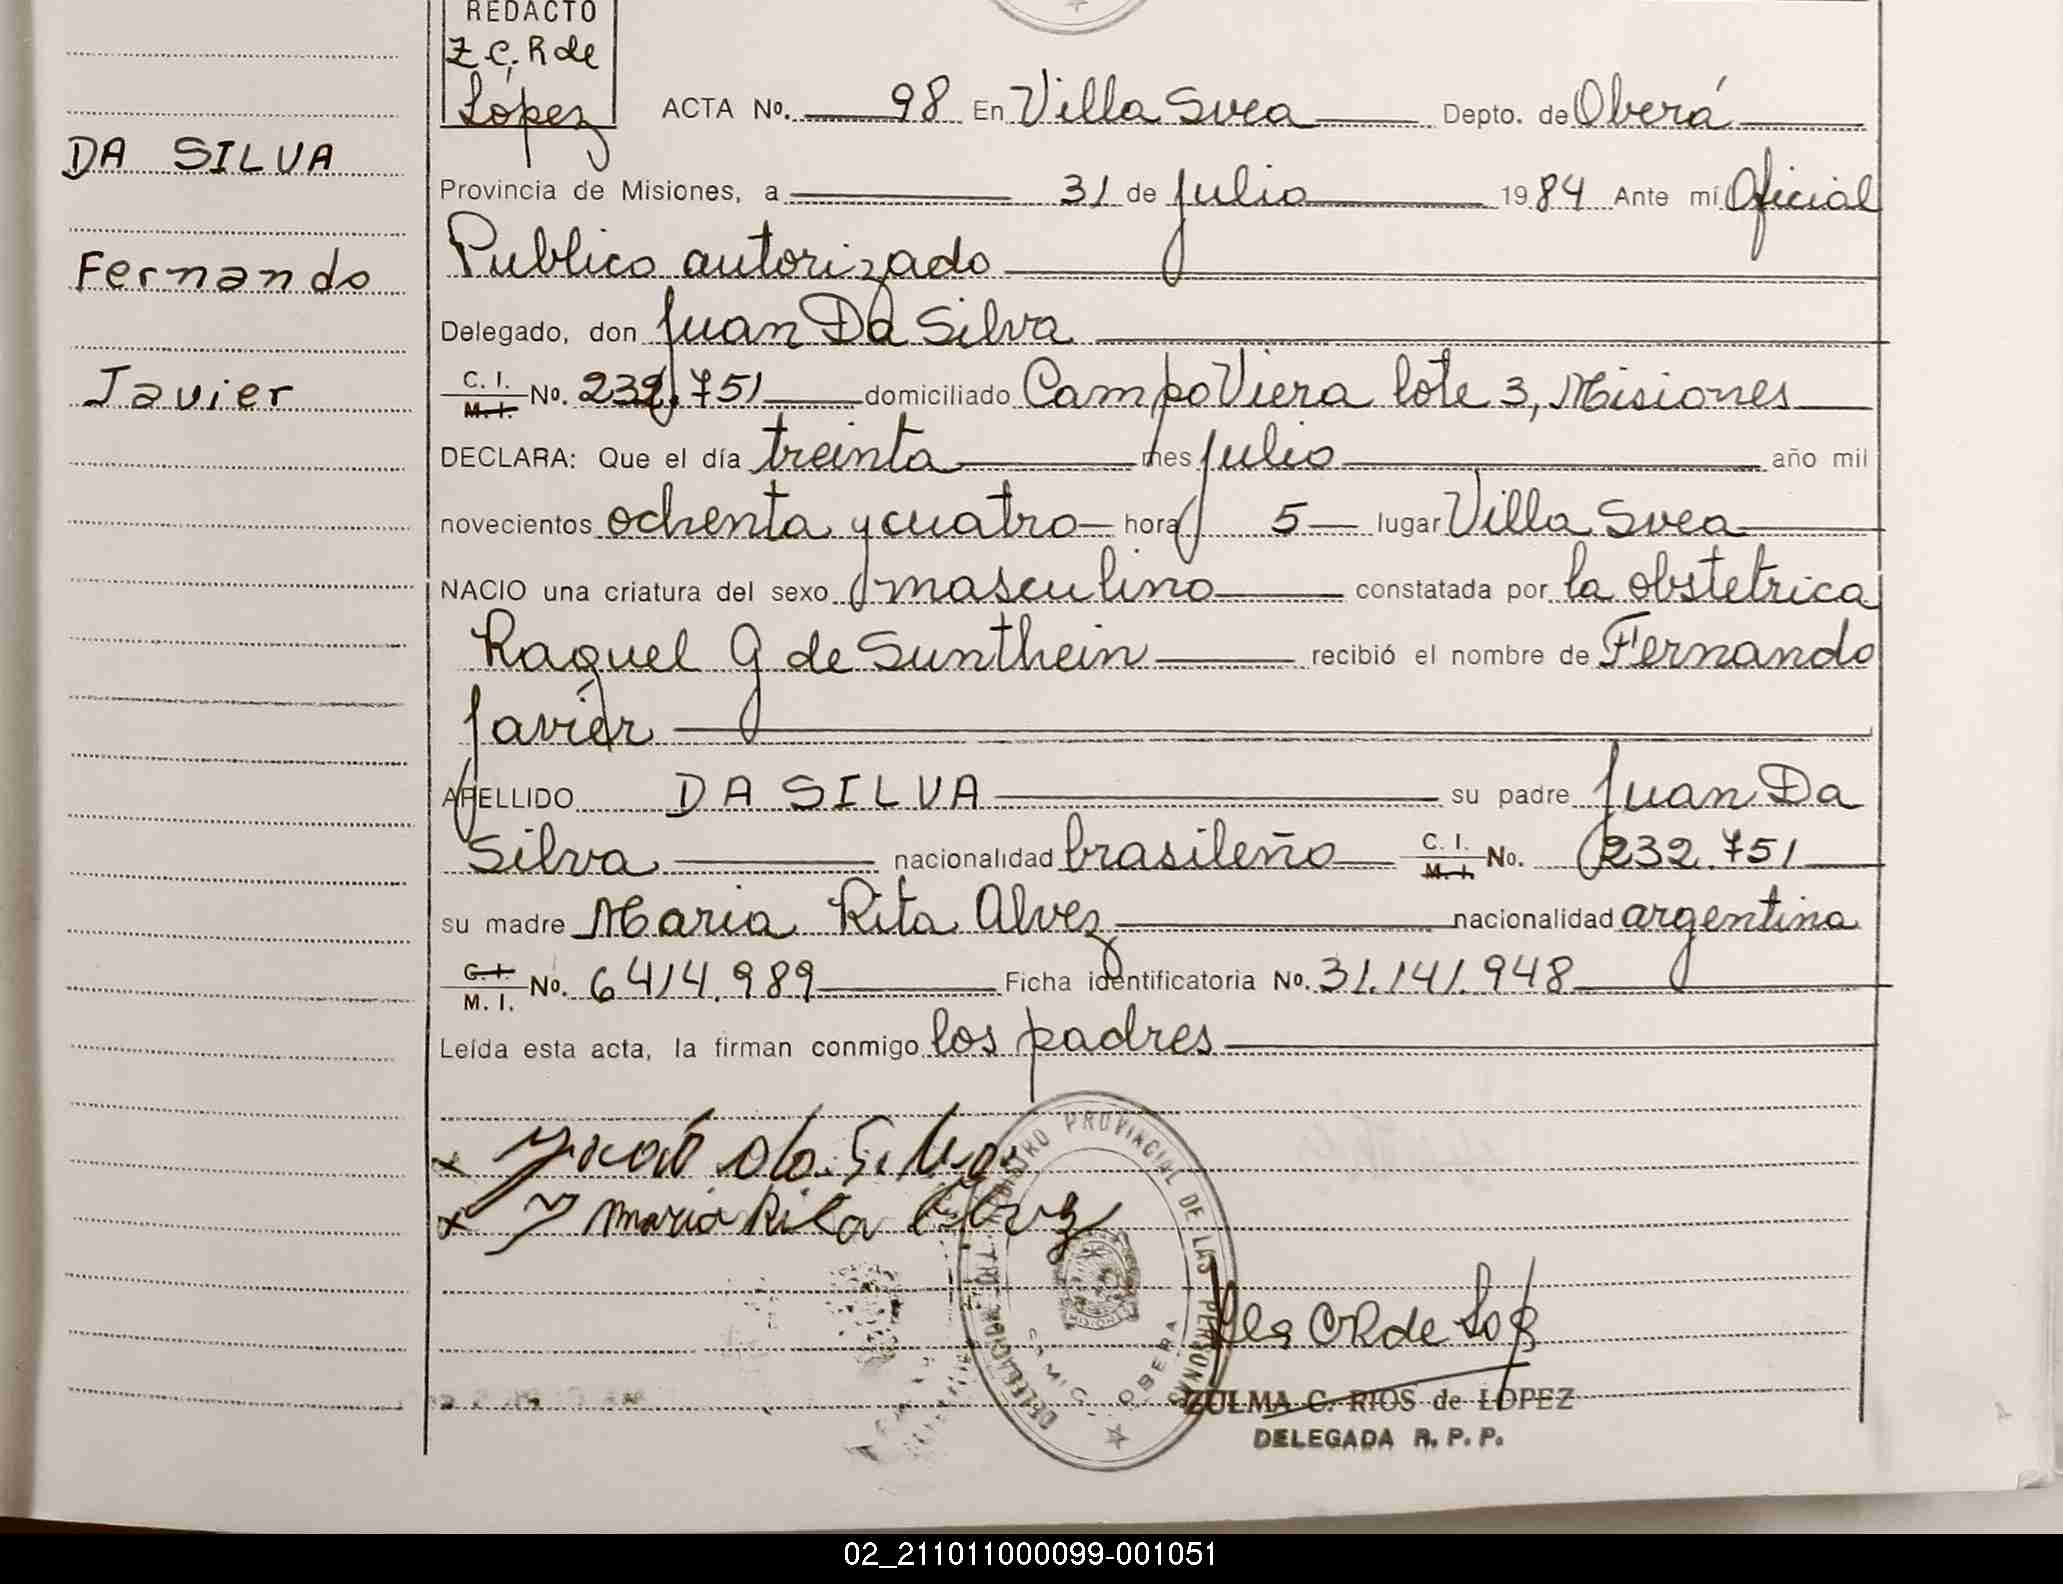 REDACTO
Z. C. R de
López
DA SILVA
Fernando
Javier
ACTA No. 98 En Villa Svea Depto. de Oberá
Provincia de Misiones, a 31 de Julio 1984 Ante mí Oficial
Publico autorizado
Delegado, don Juan Da Silva
C. I. M. I. No. 232.751 domiciliado Campo Viera lote 3, Misiones
DECLARA: Que el día treinta mes Julio año mil
novecientos ochenta y cuatro hora 5 lugar Villa Svea
NACIO una criatura del sexo masculino constatada por la obstetrica
Raquel G de Sunthein recibió el nombre de Fernando
Javier
APELLIDO DA SILVA su padre Juan Da
Silva nacionalidad brasileño C. I. M. I. No. 232.751
su madre Maria Rita Alvez nacionalidad argentina
C. I. M. I. No. 6414.989 Ficha identificatoria No. 31.141.948
Leída esta acta, la firman conmigo los padres
x da Silva
x Maria Rita Alvez
REGISTRO PROVINCIAL DE LAS PERSONAS
DELEGADA
OBERA
MISIONES
ZULMA C. RIOS de LOPEZ
DELEGADA R. P. P.
02_211011000099-001051